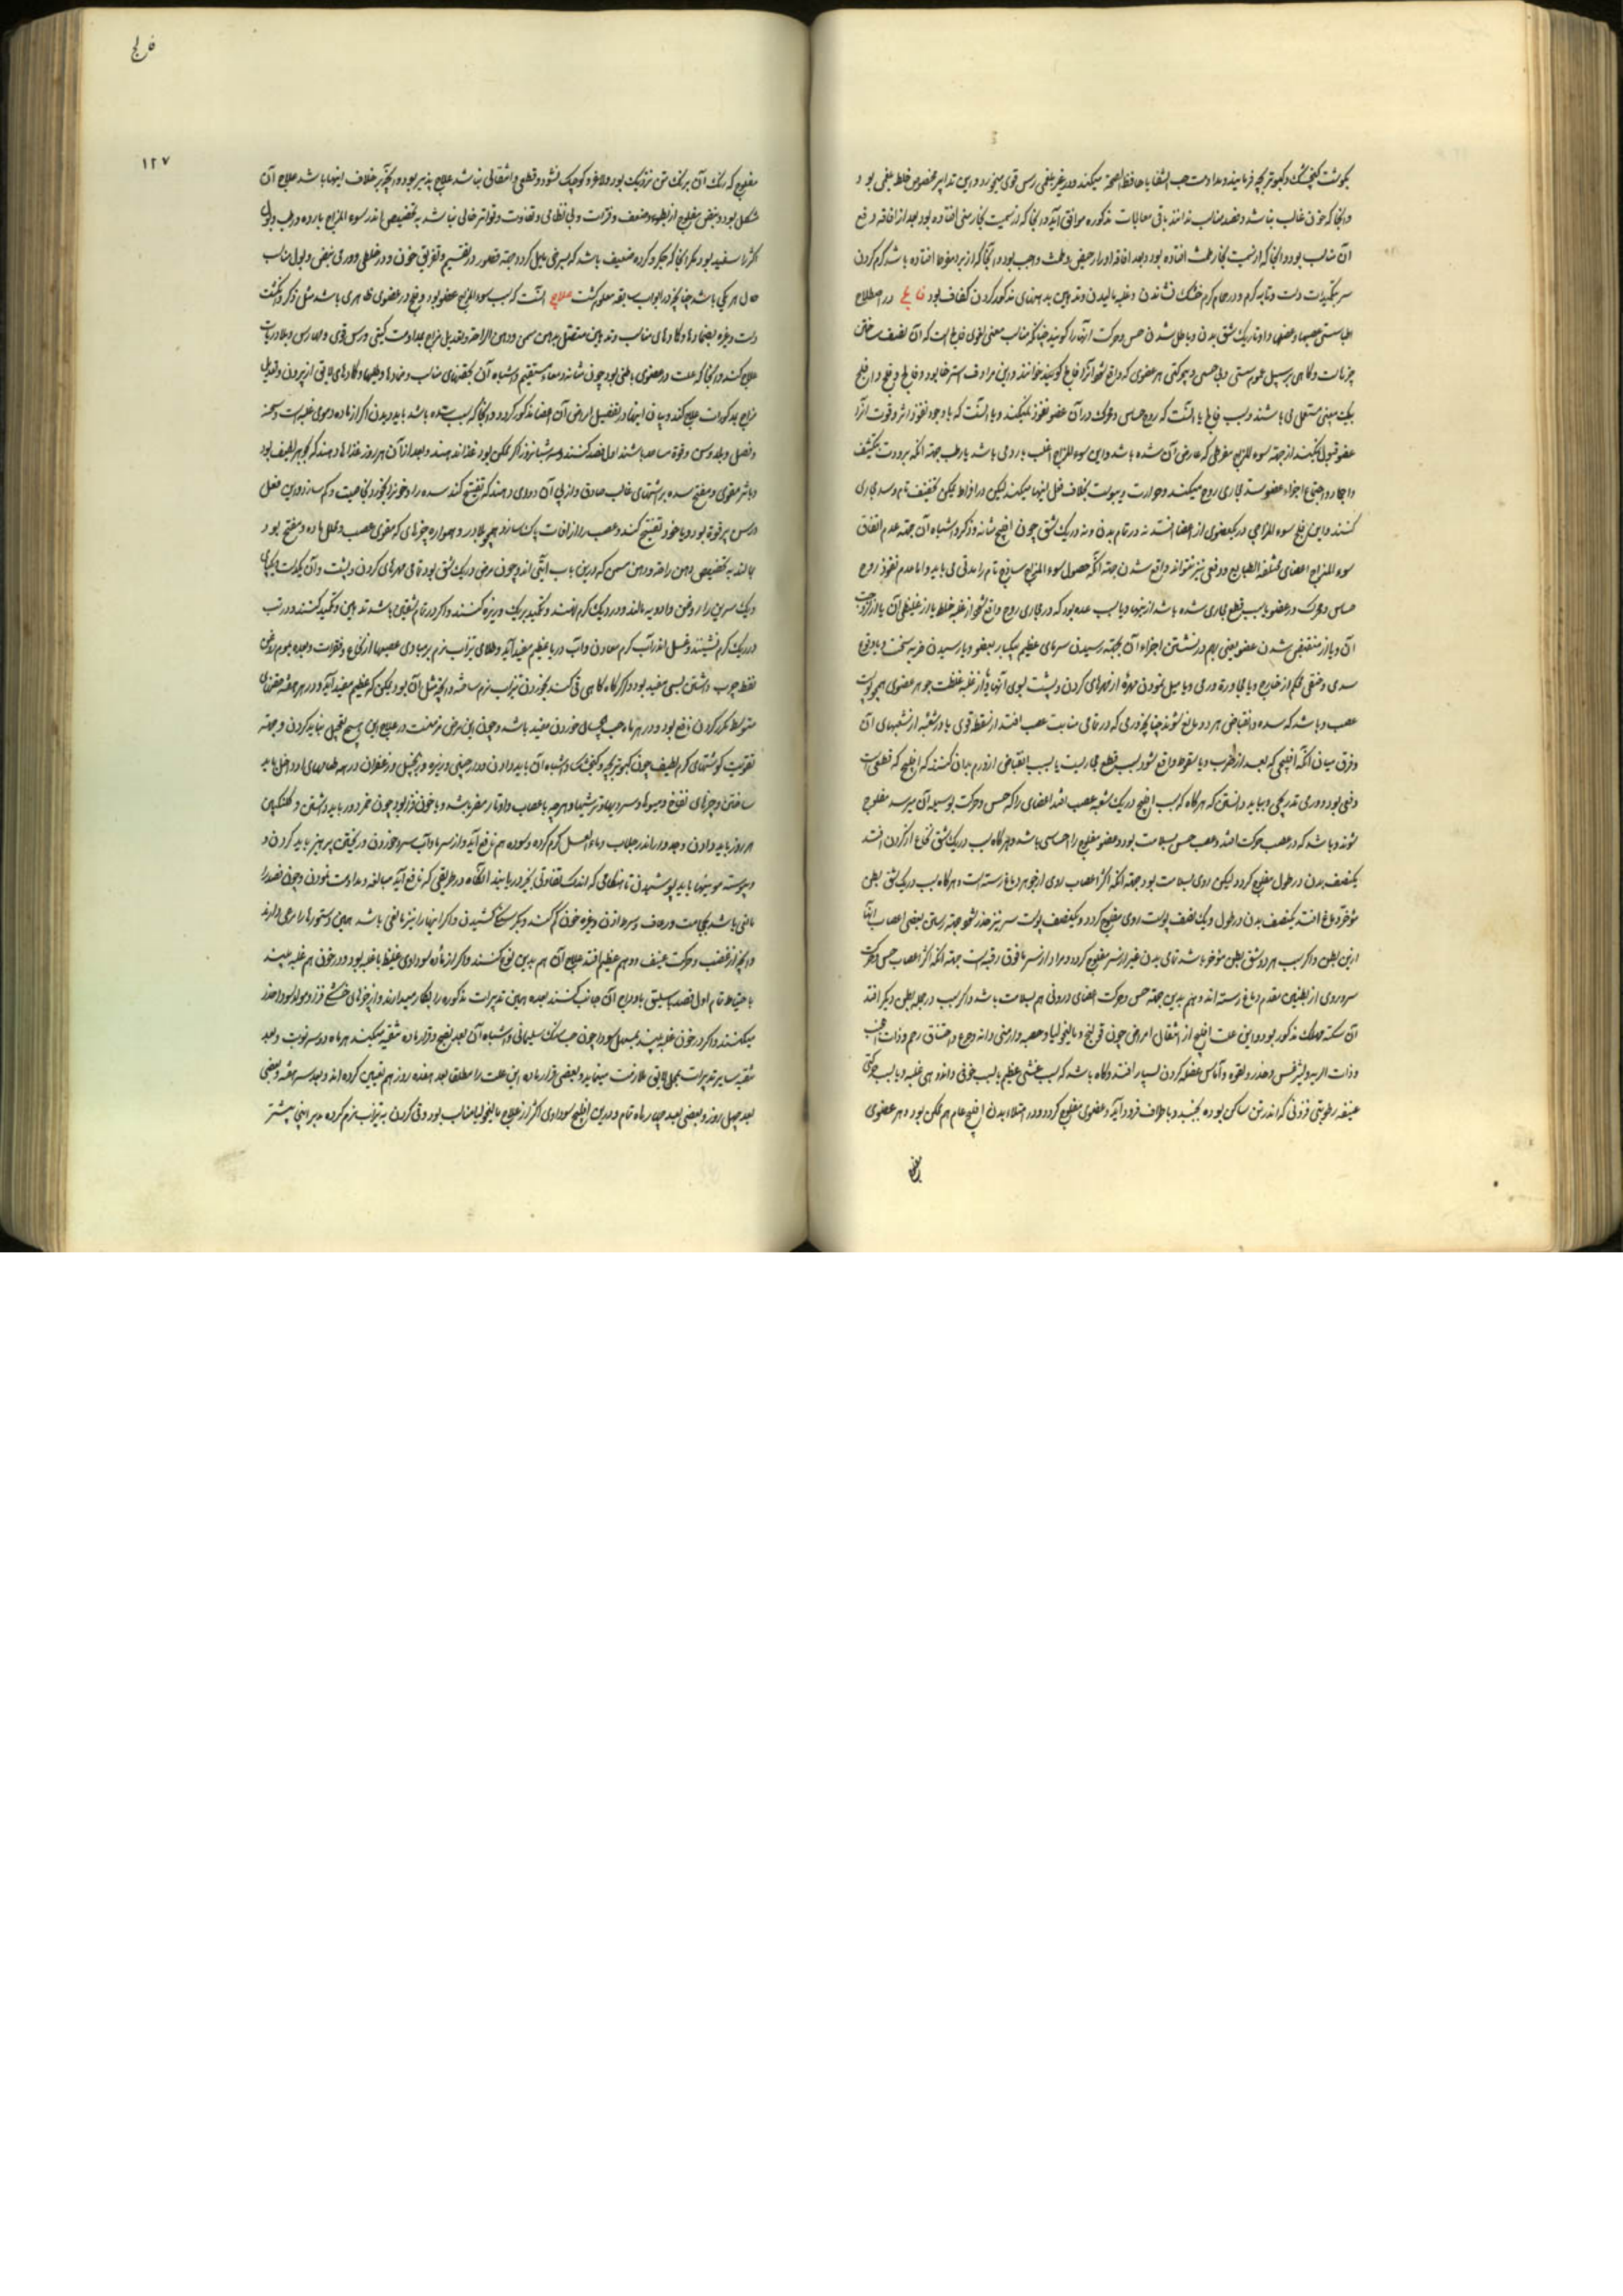 بگوشت کنجشک و کبوتر بچه فرمایند و مداومت حب الشفا یا حافظ الصحه میکنند و در غیر بلغمی رس قوی و این تدابیر مخصوص خلط بلغمی بود و
و آنجا که خون غالب نباشد و فصد مناسب ندانند باقی معالجات مذکوره موافق آید و آنجا که از سمیت بخار منی افتاده بود بعد از افاقه رفع
آن مناسب بود و آنجا که از سمیت بخار طمث افتاده بود و بعد افاقه ادرار حیض و طمث واجب بود و آنجا که از افتاده باشد گرم کردن
سر بتکمیدات دست و تابه گرم و در حمام گرم خشک نشاندن و مالیدن و تدهین بدهنهای مذکور کردن کفاف بود فالج در اصطلاح
اطبا سستی عصبها و عضلها و اوتار یک شق بدن و باطل شدن حس و حرکت آنها را گویند چنانکه مناسب معنی لغوی فالج است که آن نصف ساختن
چیز است و گاهی بر سبیل عموم سستی و بی حسی و بی حرکتی هر عضوی که واقع شود آنرا فالج گویند و این مرادف استرخا بود و فالج و فلج و افلیج
بیک معنی مستعمل می باشند و سبب فالج یا آنست که روح حساس و محرک در آن عضو نفوذ نمیکند و یا آنست که با وجود نفوذ اثر و قوت آنرا
عضو قبول نمیکند از جهته سوء المزاج مفرطی که عارض آن شده باشد و این سوء المزاج اغلب بارد می باشد یا رطب جهته آنکه برودت بتکثیف
و اجماد و اجتماع اجزاء عضو سد مجاری روح میکند و حرارت و یبوست بخلاف فعل اینها میکند لیکن در افراط تجفیف تام و سد مجاری
کنند و این فلج سوء المزاجی در بعضوی از اعضا افتد نه در تمام بدن و نه در یک شق چون افلیج مثانه و ذکر و اشباه آن جهته عدم اتفاق
سوء المزاج اعضای مختلفه الطبایع و دفعی نیز نتواند واقع شدن جهته آنکه حصول سوء المزاج ساذج تام را مدتی می باید و اما عدم نفوذ روح
حساس و محرک در عضو یا بسبب قطع مجاری شده باشد از بنیها و یا بسبب سده بود که در مجاری روح واقع شود از غلبه خلط یا از غلیظی آن یا از لزوجت
آن و یا از منقبض شدن عضو یعنی بهم در نشستن اجزاء آن بجهته رسیدن سرمای عظیم بیکبار بعضو و یا رسیدن ضربه سخت و یا وقوع
سدی و ضغطی محکم از خارج و یا مجاورة ورمی و یا میل نمودن مهره از مهرهای گردن و پشت بسوی آنها یا از غلبه غلظت جوهر عضوی همچو پوست
عصب و باشد که سده و انقباض هر دو مانع شوند چنانچه ورمی که در تمامی منابت عصب افتد از سقطه قوی یا در شعبه از شعبهای آن
و فرق میان آنکه افلیجی که بعد از ضرب و یا سقوط واقع شود بسبب قطع مجاریست یا بسبب انقباض از ورم بدان کنند که افلیج که قطعی است
دفعی بود و ورمی تدریجی و بباید دانستن که هرگاه که سبب افلیج در یک شعبه عصب افتد اعضای را که حس و حرکت بوسیله آن میرسد مفلوج
شوند و باشد که در عصب حرکت افتد و عصب حس بسلامت بود و عضو مفلوج را احساسی باشد و هرگاه سبب در یک شق نخاع از گردن افتد
یکنصف بدن در طول مفلوج گردد لیکن روی بسلامت بود جهته آنکه اکثر اعصاب روی از جوهر دماغ رسته است و هرگاه سبب در یک شق بطن
مؤخر دماغ افتد یکنصف بدن در طول و یک نصف پوست روی مفلوج گردد و یکنصف پوست سر نیز خدر شود جهته رستن بعضی اعصاب اینها
ازین بطن و اگر سبب هر دو شق بطن مؤخر باشد تمامی بدن غیر از سر مفلوج گردد و مراد از سر مافوق رقبه است جهته آنکه اکثر اعصاب حس و حرکت
سر و روی از بطنین مقدم دماغ رسته اند و هم بدین جهته حس و حرکت اعضای درونی هم بسلامت باشد و اگر سبب در جمله بطن دیگر افتد
آن سکته مهلک مذکور بود و این علت افلیج از انتقال امراض چون قولنج و مالیخولیا و حصبه و ارمنی دانه و وجع و اختناق رحم و ذات الجنب
و ذات الریه و لیثرغس و خدر و لقوه و آماس عضله گردن بسیار افتد و گاه باشد که بسبب غشی عظیم یا بسبب خوفی و اندوهی غلبه و یا بسبب حرکتی
عنیفه رطوبتی فزونی که اندر تن ساکن بوده بجنبد و باطراف فرود آید و عضوی مفلوج گردد و در امتلاء بدن افلیج عام هم ممکن بود و هر عضوی
مفلوج
فالج
۱۲۷
مفلوج که رنگ آن برنگ تن نزدیک بود و لاغر و کوچک نشود و قطعی و انتقالی نباشد علاج پذیر بود و آنچه بر خلاف اینها باشد علاج آن
مشکل بود و نبض مفلوج از بطوء و ضعف و فترات و بی نظامی و تفاوت و تواتر خالی نباشد به تخصیص اندر سوء المزاج بارده و رطب و بول
اکثرا سفید بود مگر آنجا که جگر و گرده ضعیف باشد که بسرخی مایل گردد جهته قصور در تقسیم و تفریق خون و در خلطی و ورمی نبض و بول مناسب
حال هر یکی باشد چنانچه در ابواب سابقه معلوم گشت علاج آنست که سبب سوء المزاج عضو بود و فلج در عضوی ظاهری باشد مثل ذکر و انگشت
دست و غیره بضمادها و کادهای مناسب و تدهین متصل بدهن مسمن و دهن الراحة و تعدیل مزاج بمداومت کبتی و رس قوی و امهارس و بلادریات
علاج کنند و آنجا که علت در عضوی باطنی بود چون مثانه و معاء مستقیم و اشباه آن بحقنهای مناسب و ضمادها و طلیها و کادهای لایق از بیرون و تعدیل
مزاج بمذکورات علاج کند و بیان اینها در تفصیل امراض آن اعضا مذکور گردد و آنجا که سبب سده باشد باید دیدن اگر از ماده دموی غلبه است و سحنه
و فصل و بلد و سن و قوة مساعد باشند اول فصد کنند و سه شبانروز اگر ممکن بود غذا ندهند و بعد از آن هر روز غذاها دهند که بجوهر لطیف بود
و باثر مقوی و مفتح سده بر اشتهای غالب صادق و از پی آن دوری دهند که تفتیح کند سده را و خون را بخاصیت و کم سازد و این فعل
و رس پر قوة بود و یا خود تفتیح کند و عصب را از آفات پاک سازد همچو بلادر و همواره چیزهای که مقوی عصب و محلل ماده و مفتح بود
مالند به تخصیص دهن راحة و دهن مسمن که درین باب آیتی اند و چون مرض در یک شق بود تمامی مهرهای گردن و پشت و آن یکدست و یکپای
و یک سرین را روغن و ادویه مالند و در ریگ گرم نهند و تکمید بریگ و زیره کنند و اگر در تمام شقین باشد تدهین و تکمید کنند و مرتب
در ریگ گرم نشینند و غسل اندر آب گرم معادن و آب دریا عظیم مفید آید و طلای تیزاب نرم بر مبادی عصبها از نخاع و فقرات و معده بموم روغن
نفط چرب داشتن بسی مفید بود و اگر گاه گاهی قی کنند بخوردن تیزاب نرم ساخته و آنچه مثل آن بود ممکن که عظیم مفید آید و در هر هفته حقنهای
متوسط مکرر کردن نافع بود و در هر ماه حب مسهل خوردن مفید باشد و چون این مرض مزمنست در علاج این هیچ تعجیل نباید کردن و جهته
تقویت گوشتهای گرم لطیف چون کبوتر بچه و کنجشک و اشباه آن باید دادن و دارچینی و زیره و زنجبیل و زعفران در همه طعامهای او داخل باید
ساختن و چیزهای نفوخ و میوها و سردیها و ترشیها و هر چه باعصاب و اوتار مضر باشد و یا خون فزاید چون خمر دور باید داشتن و گلنگبین
هر روز باید دادن و جدوار اندر جلاب و ماء العسل گرم کرده و سوده هم نافع آید و از سرما و آب سرد خوردن و ریختن پرهیز باید کردن و
پیوسته موینها باید پوشیدن تا هنگامی که اندک تفاوتی بخیر دریابند آنگاه در طریقی که نافع آید مبالغه و مداومت نمودن و چون فصد را
مانعی باشد بحجامت و رعاف و سرها زدن و غیره خون کم کنند و یکرگ کشیدن و اگر اینها را نیز مانعی باشد همین دستورها را مرعی دارند
و آنچه از غضب و حرکت عنیف و وهم عظیم افتد علاج آن هم بدین نوع کنند و اگر از ماده سوداوی غلیظ باغلبه بود و در خون هم غلبه بینند
باحتیاط تمام اول فصد باسلیق یا وداج آن جانب کنند بعده همین تدبیرات مذکوره را بکار میدارند و از چیزهای خشکی فزا و مولد سودا حذر
میکنند و اگر در خون غلبه نبینند بمسهل سودا چون حب سنگ سلیمانی و اشباه آن بعد نضج و قرار ماده تنقیه میکنند هر ماه دو سه نوبت و بعد
تنقیه سایر تدبیرات بمحل لایق ملازمت مینمایند و بعضی قرار ماده این علت را مطلق بعد هفده روز هم تعیین کرده اند و بعد سه هفته و بعضی
بعد چهل روز و بعضی بعد چهار ماه تمام و درین افلیج سوداوی اکثر از علاج مالیخولیا مناسب بود و قی کردن به تیزاب نرم کرده پیشتر